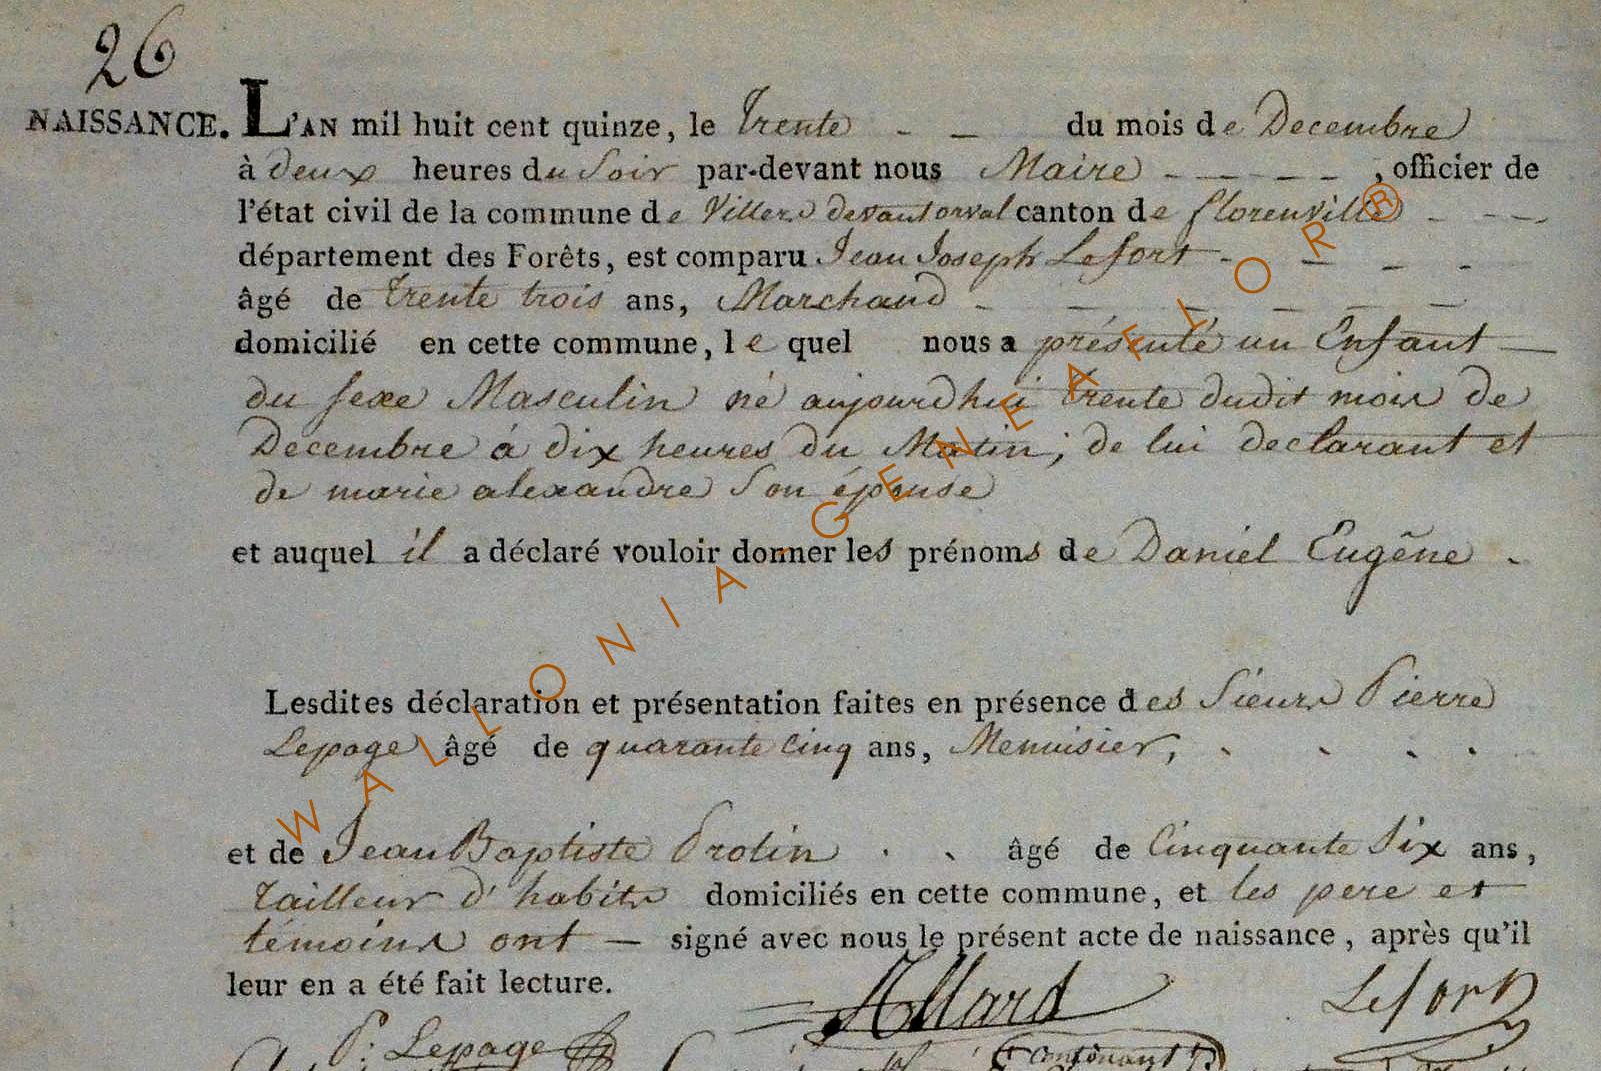 26
NAISSANCE. L'AN mil huit cent quinze, le Trente - - du mois de Decembre
à deux heures du Soir par-devant nous Maire - - - - , officier de
l'état civil de la commune de Villers devant orval canton de florenville - - - -
département des Forêts, est comparu Jean Joseph Lefort - - - -
âgé de trente trois ans, Marchand - - - - - -
domicilié en cette commune, lequel nous a présenté un Enfant —
du sexe Masculin né aujourdhui trente dudit mois de
Decembre à dix heures du Matin; de lui declarant et
de marie alexandre Son épouse
et auquel il a déclaré vouloir donner les prénoms de Daniel Eugêne .
Lesdites déclaration et présentation faites en présence des Sieurs Pierre
Lepage âgé de quarante Cinq ans, Menuisier, . . . .
et de Jean Baptiste Protin . . âgé de Cinquante Six ans,
tailleur d'habits domiciliés en cette commune, et les pere et
témoins ont — signé avec nous le présent acte de naissance, après qu'il
leur en a été fait lecture.
Allard Lefort
P: Lepage
contenant
WALLONIA-GENEAFIOR®